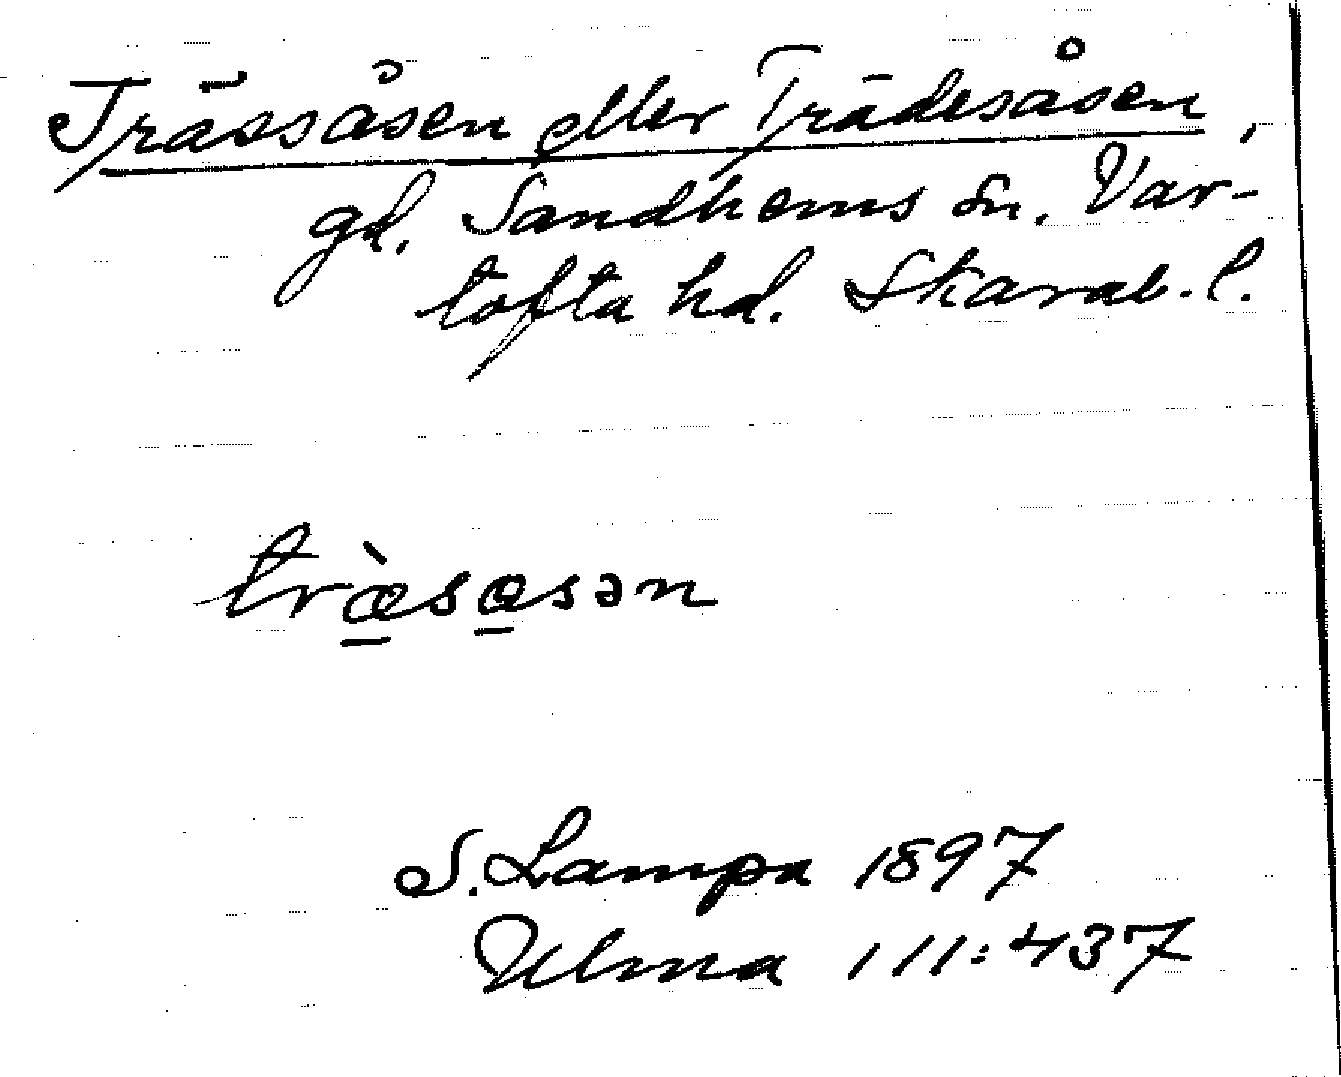 Trässåsen eller Trädesåsen,
gd. Sandhems sn. Var-
tofta hd. Skarab. l.
træ̀sa̲sən
S. Lampa 1897
Ulma 111:437